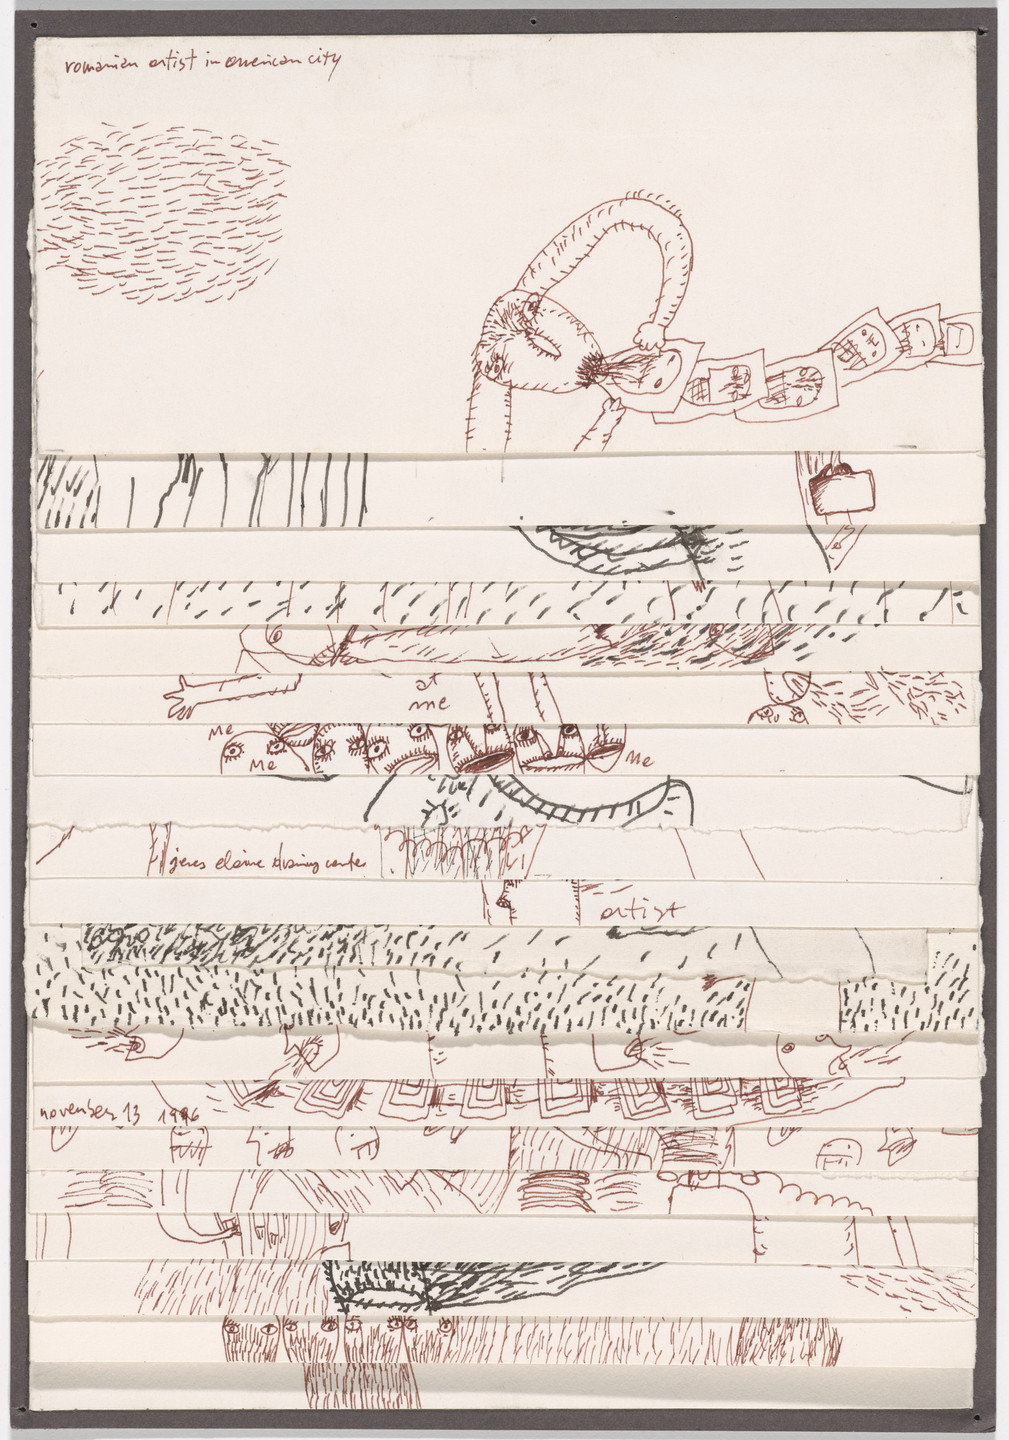 romanian artist in american city
at
me
Me
Me
Me
jenes elaine dusing center
artist
november 13 1996